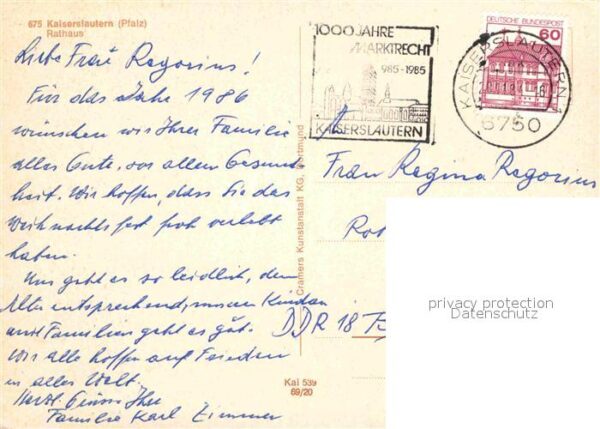 675 Kaiserslautern (Pfalz)
Rathaus
Liebe Frau Regorius!
Für das Jahr 1986
wünschen wir Ihrer Familie
alles Gute, vor allem Gesund
heit. Wir hoffen, dass Sie das
Weihnachtsfest froh verlebt
haben.
Uns geht es so leidlich, dem
Alter entsprechend, unseren Kindern
und Familien geht es gut.
Wir alle hoffen auf Frieden
in aller Welt.
Herzl. Grüsse Ihre
Familie Karl Zimmer
Cramers Kunstanstalt KG, Dortmund
Kal 539
69/20
1000 JAHRE
MARKTRECHT
985-1985
KAISERSLAUTERN
DEUTSCHE BUNDESPOST
60
KAISERSLAUTERN
6750
Frau Regina Regorius
Rot
DDR 18
privacy protection
Datenschutz